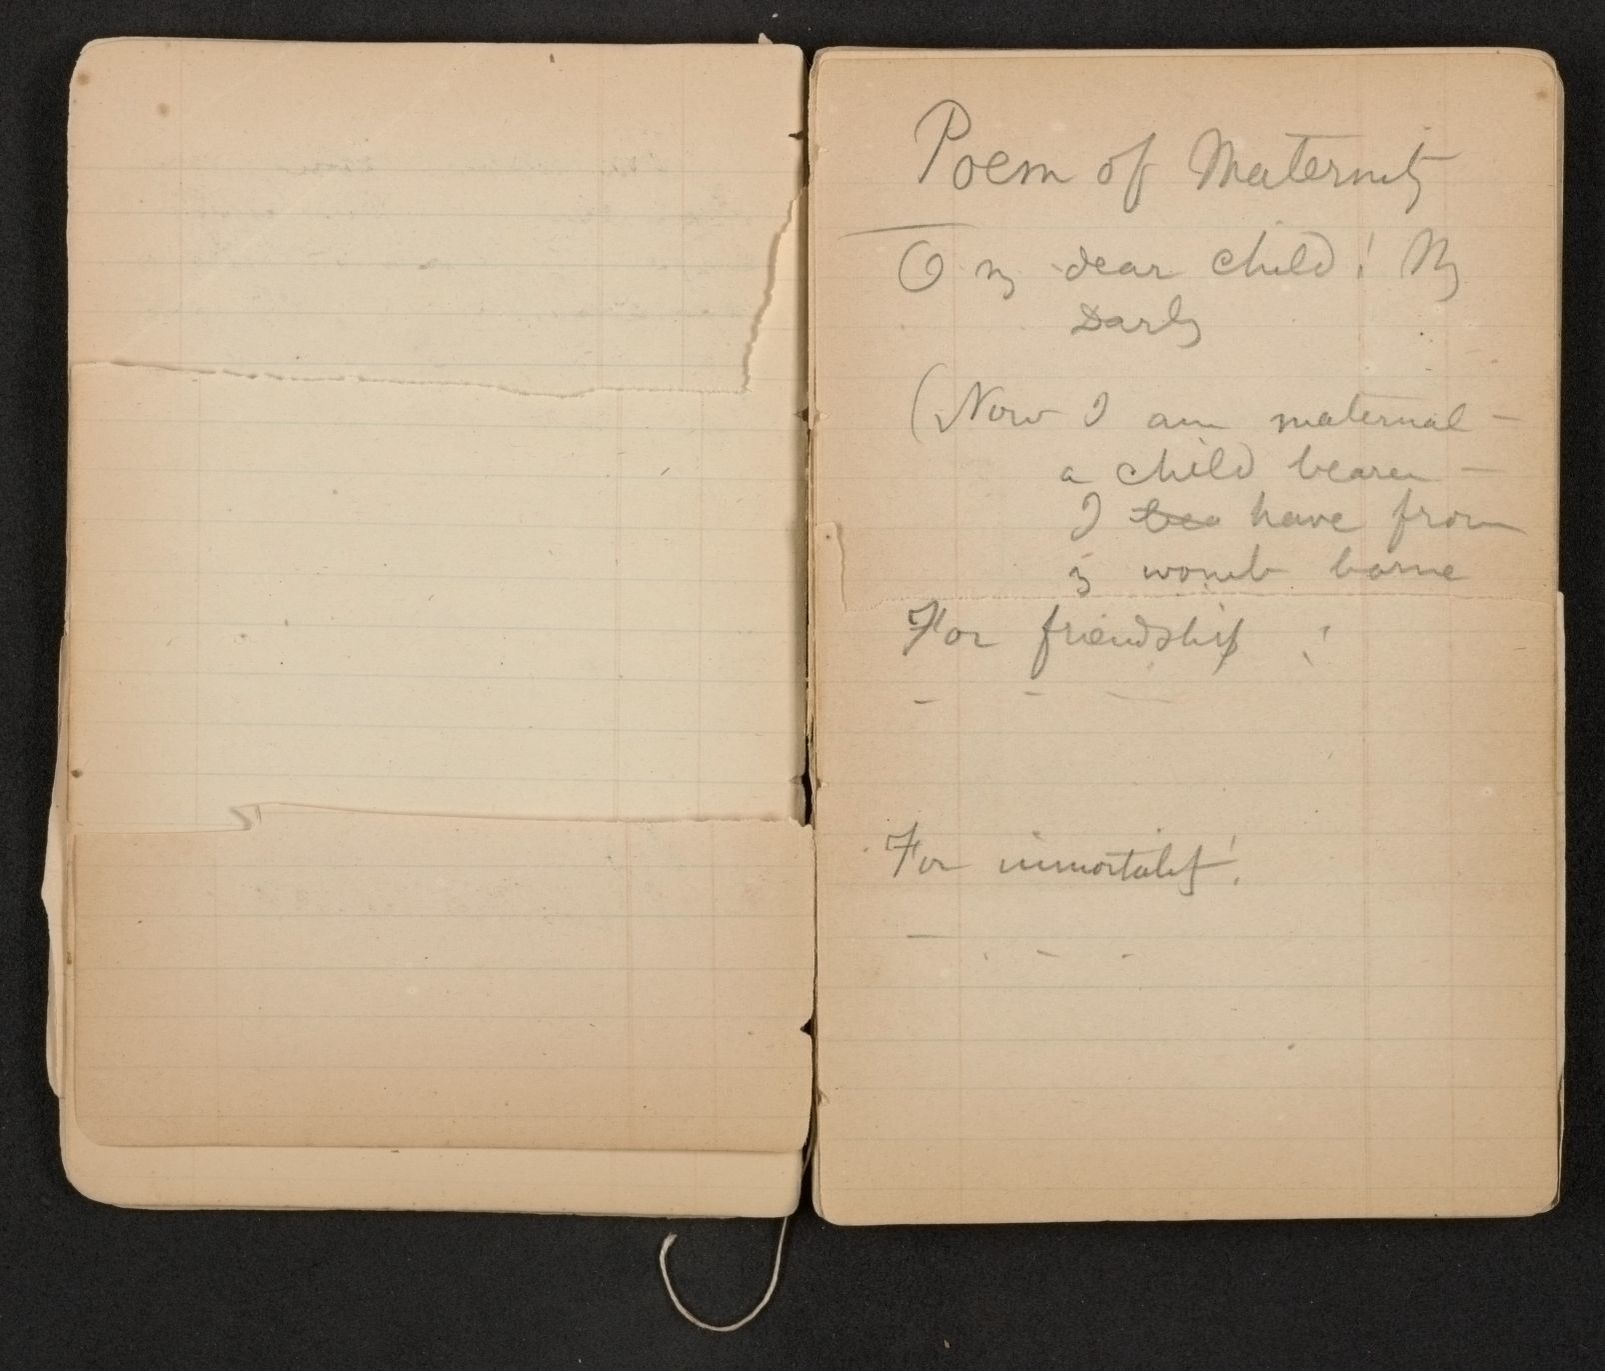 Poem of Maternity
O my dear child! My
Darling
(Now I am maternal –
a child bearer –
I bea have from
my womb borne
For friendship !
– – –
For immortality!
– . – .